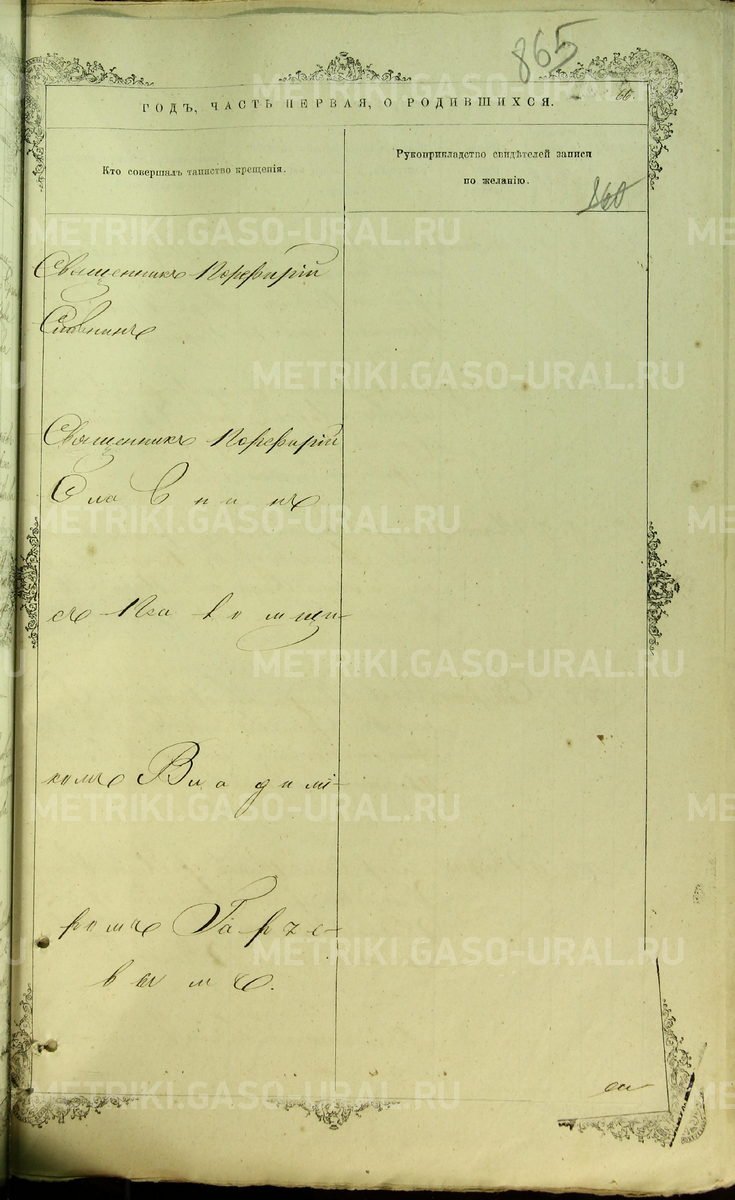 865
ГОДЪ, ЧАСТЬ ПЕРВАЯ, О РОДИВШИХСЯ.
66.
Кто совершалъ таинство крещенія.
Рукоприкладство свидѣтелей записи
по желанію.
860
Священникъ Порфирій
Славнинъ
Священникъ Порфирій
Славнинъ
съ Псаломщи-
комъ Владимі-
ромъ Гарче-
вымъ.
METRIKI.GASO-URAL.RU